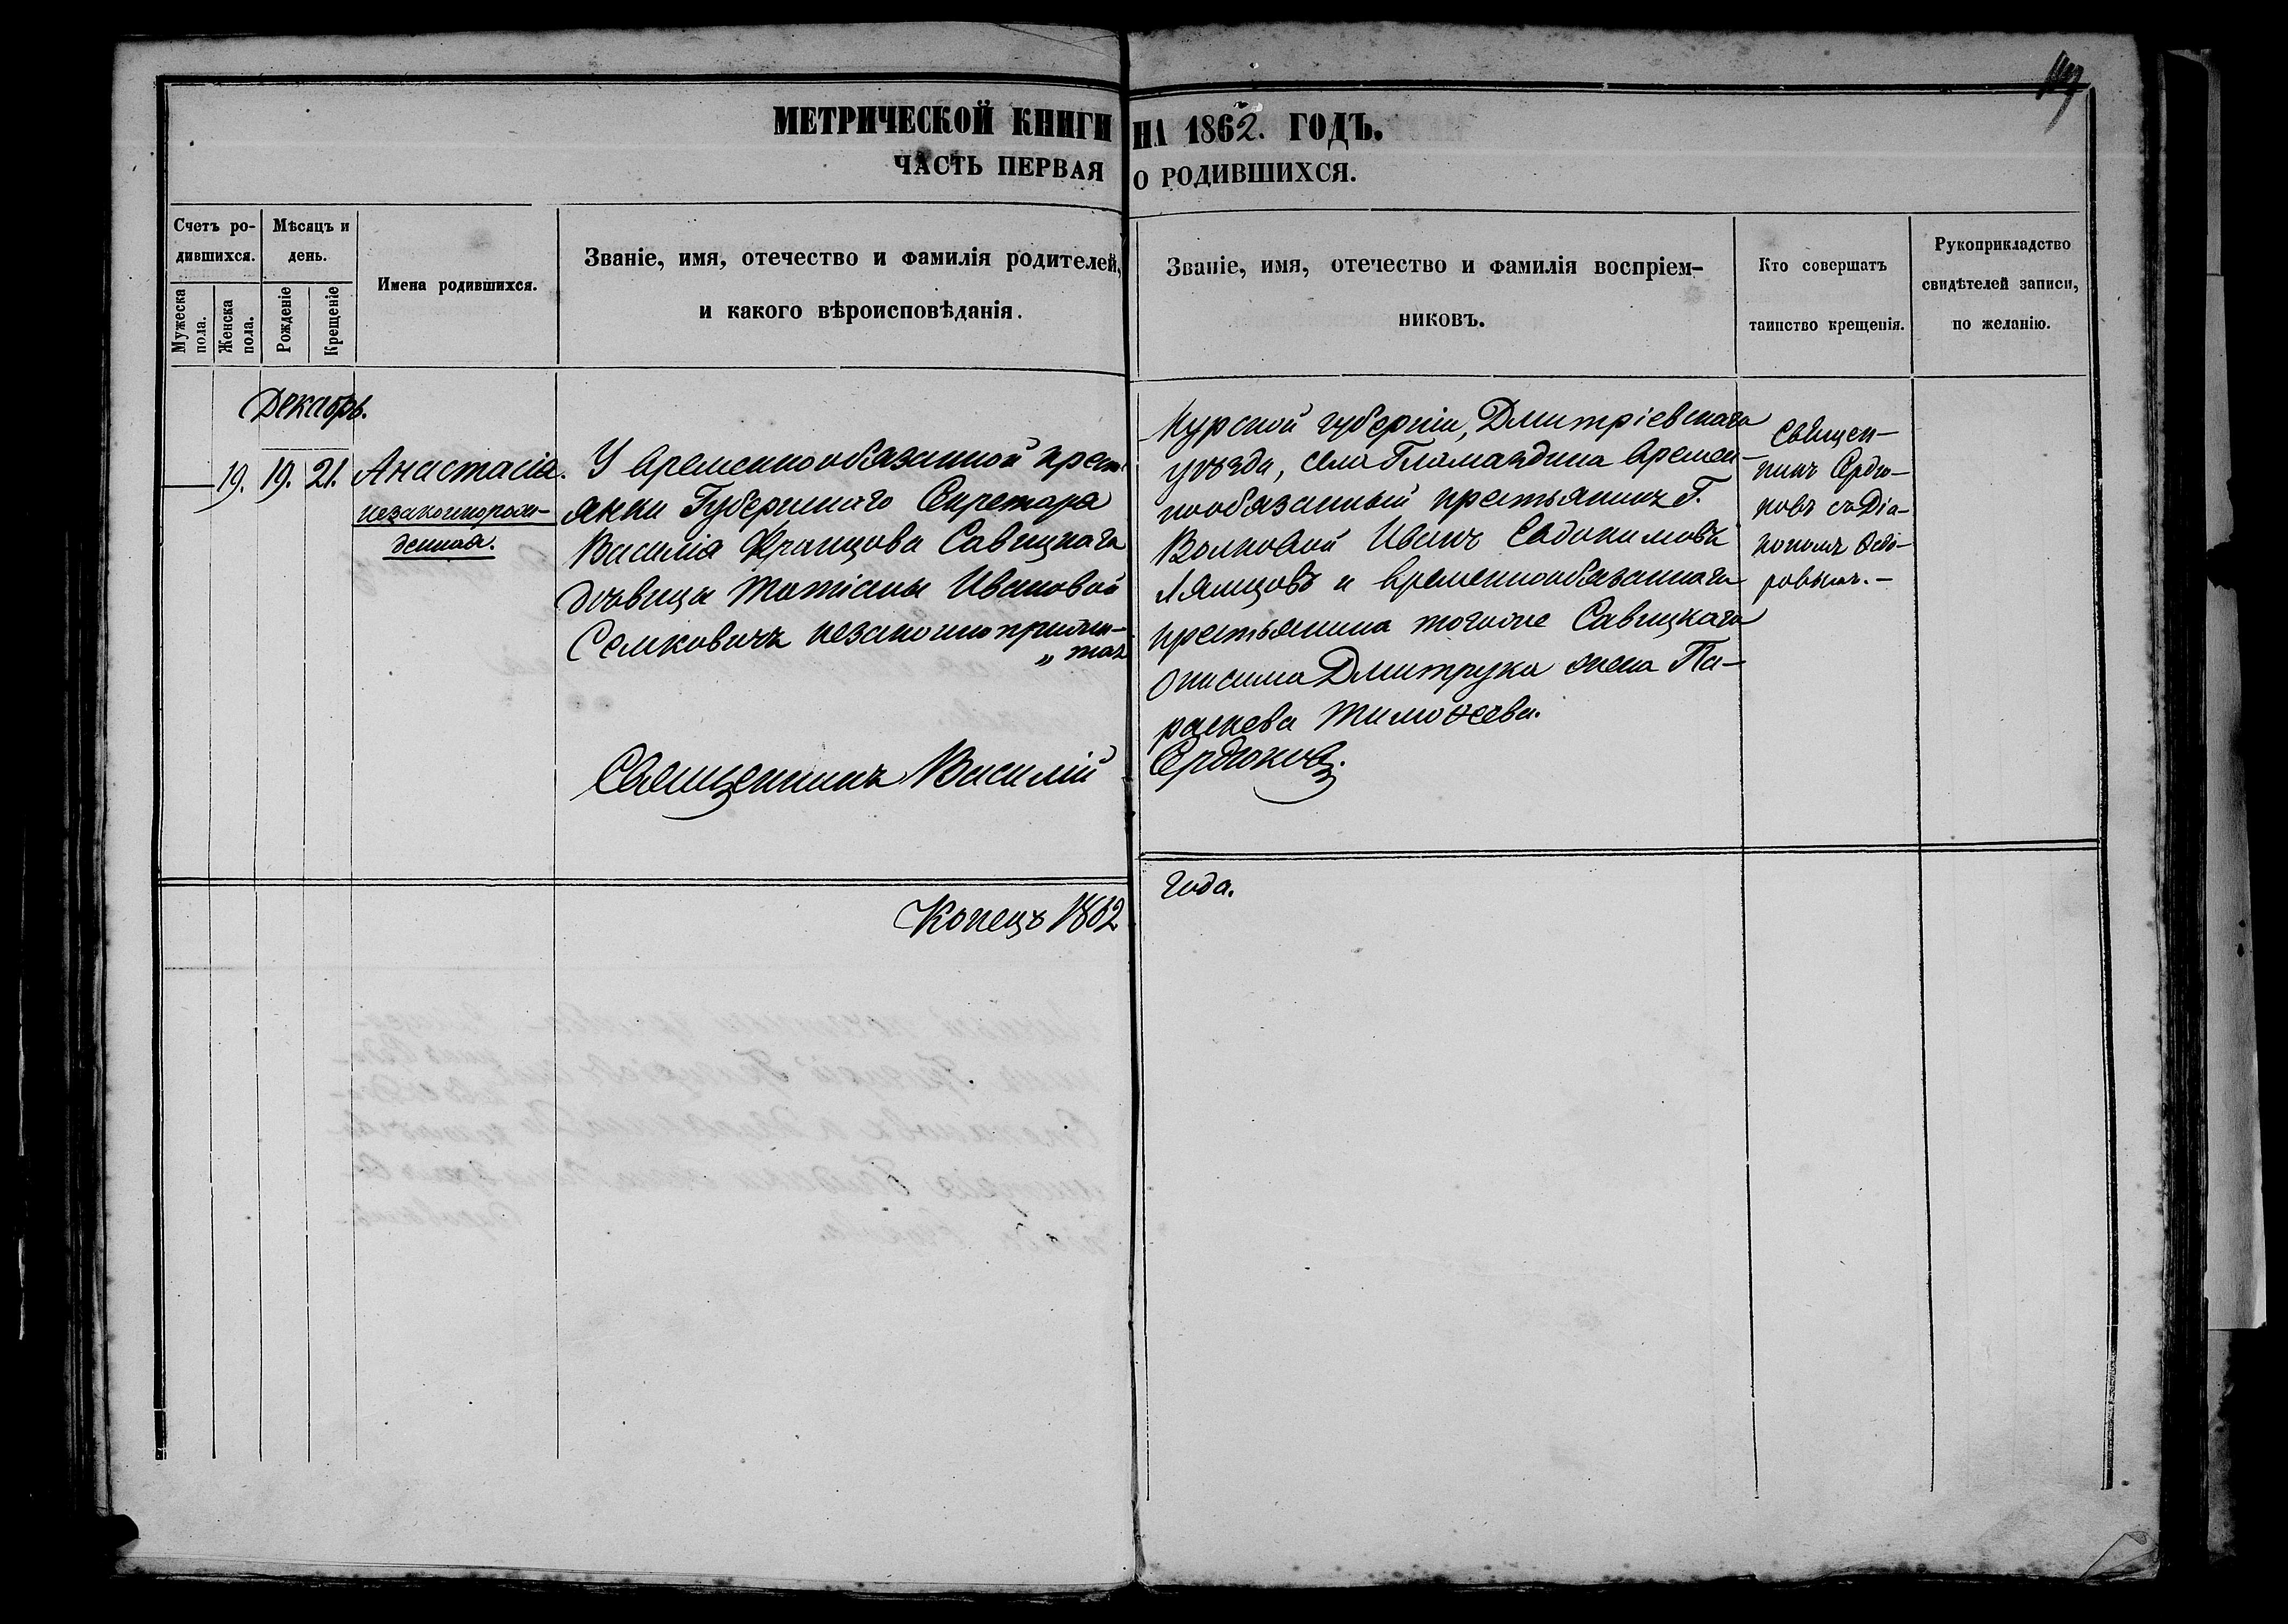 МЕТРИЧЕСКОЙ КНИГИ НА 1862. ГОДЪ.
ЧАСТЬ ПЕРВАЯ О РОДИВШИХСЯ.
Счетъ ро-
дившихся.
Мужеска
пола.
Женска
пола.
Мѣсяцъ и
день.
Рожденіе
Крещеніе
Имена родившихся.
Званіе, имя, отечество и фамилія родителей,
и какого вѣроисповѣданія.
Званіе, имя, отечество и фамилія воспріем-
никовъ.
Кто совершатъ
таинство крещенія.
Рукоприкладство
свидѣтелей записи,
по желанію.
Декабрь.
19. 19. 21. Анастасія.
незаконнорож-
денная.
У временнообязанной крест
янки Губернскаго Секретаря
Василія Францова Савицкаго
дѣвицы Татіаны Ивановой
Семковичъ незаконно прижи-
„ тая
Курской губерніи, Дмитріевскаго
уѣзда, села времен-
нообязанный крестьянинъ Г.
Волковой Иванъ Евдокимовъ
Лямцовъ и временнообязаннаго
крестьянина тогоже Савицкаго
Онисима Дмитрука жена Па-
раскева Тимоѳеева.
Священ-
никъ Ердю-
ковъ съ Діа-
кономъ Ѳедо-
ровымъ.-
Священникъ Василій Ердюковъ.
Конецъ 1862 года.